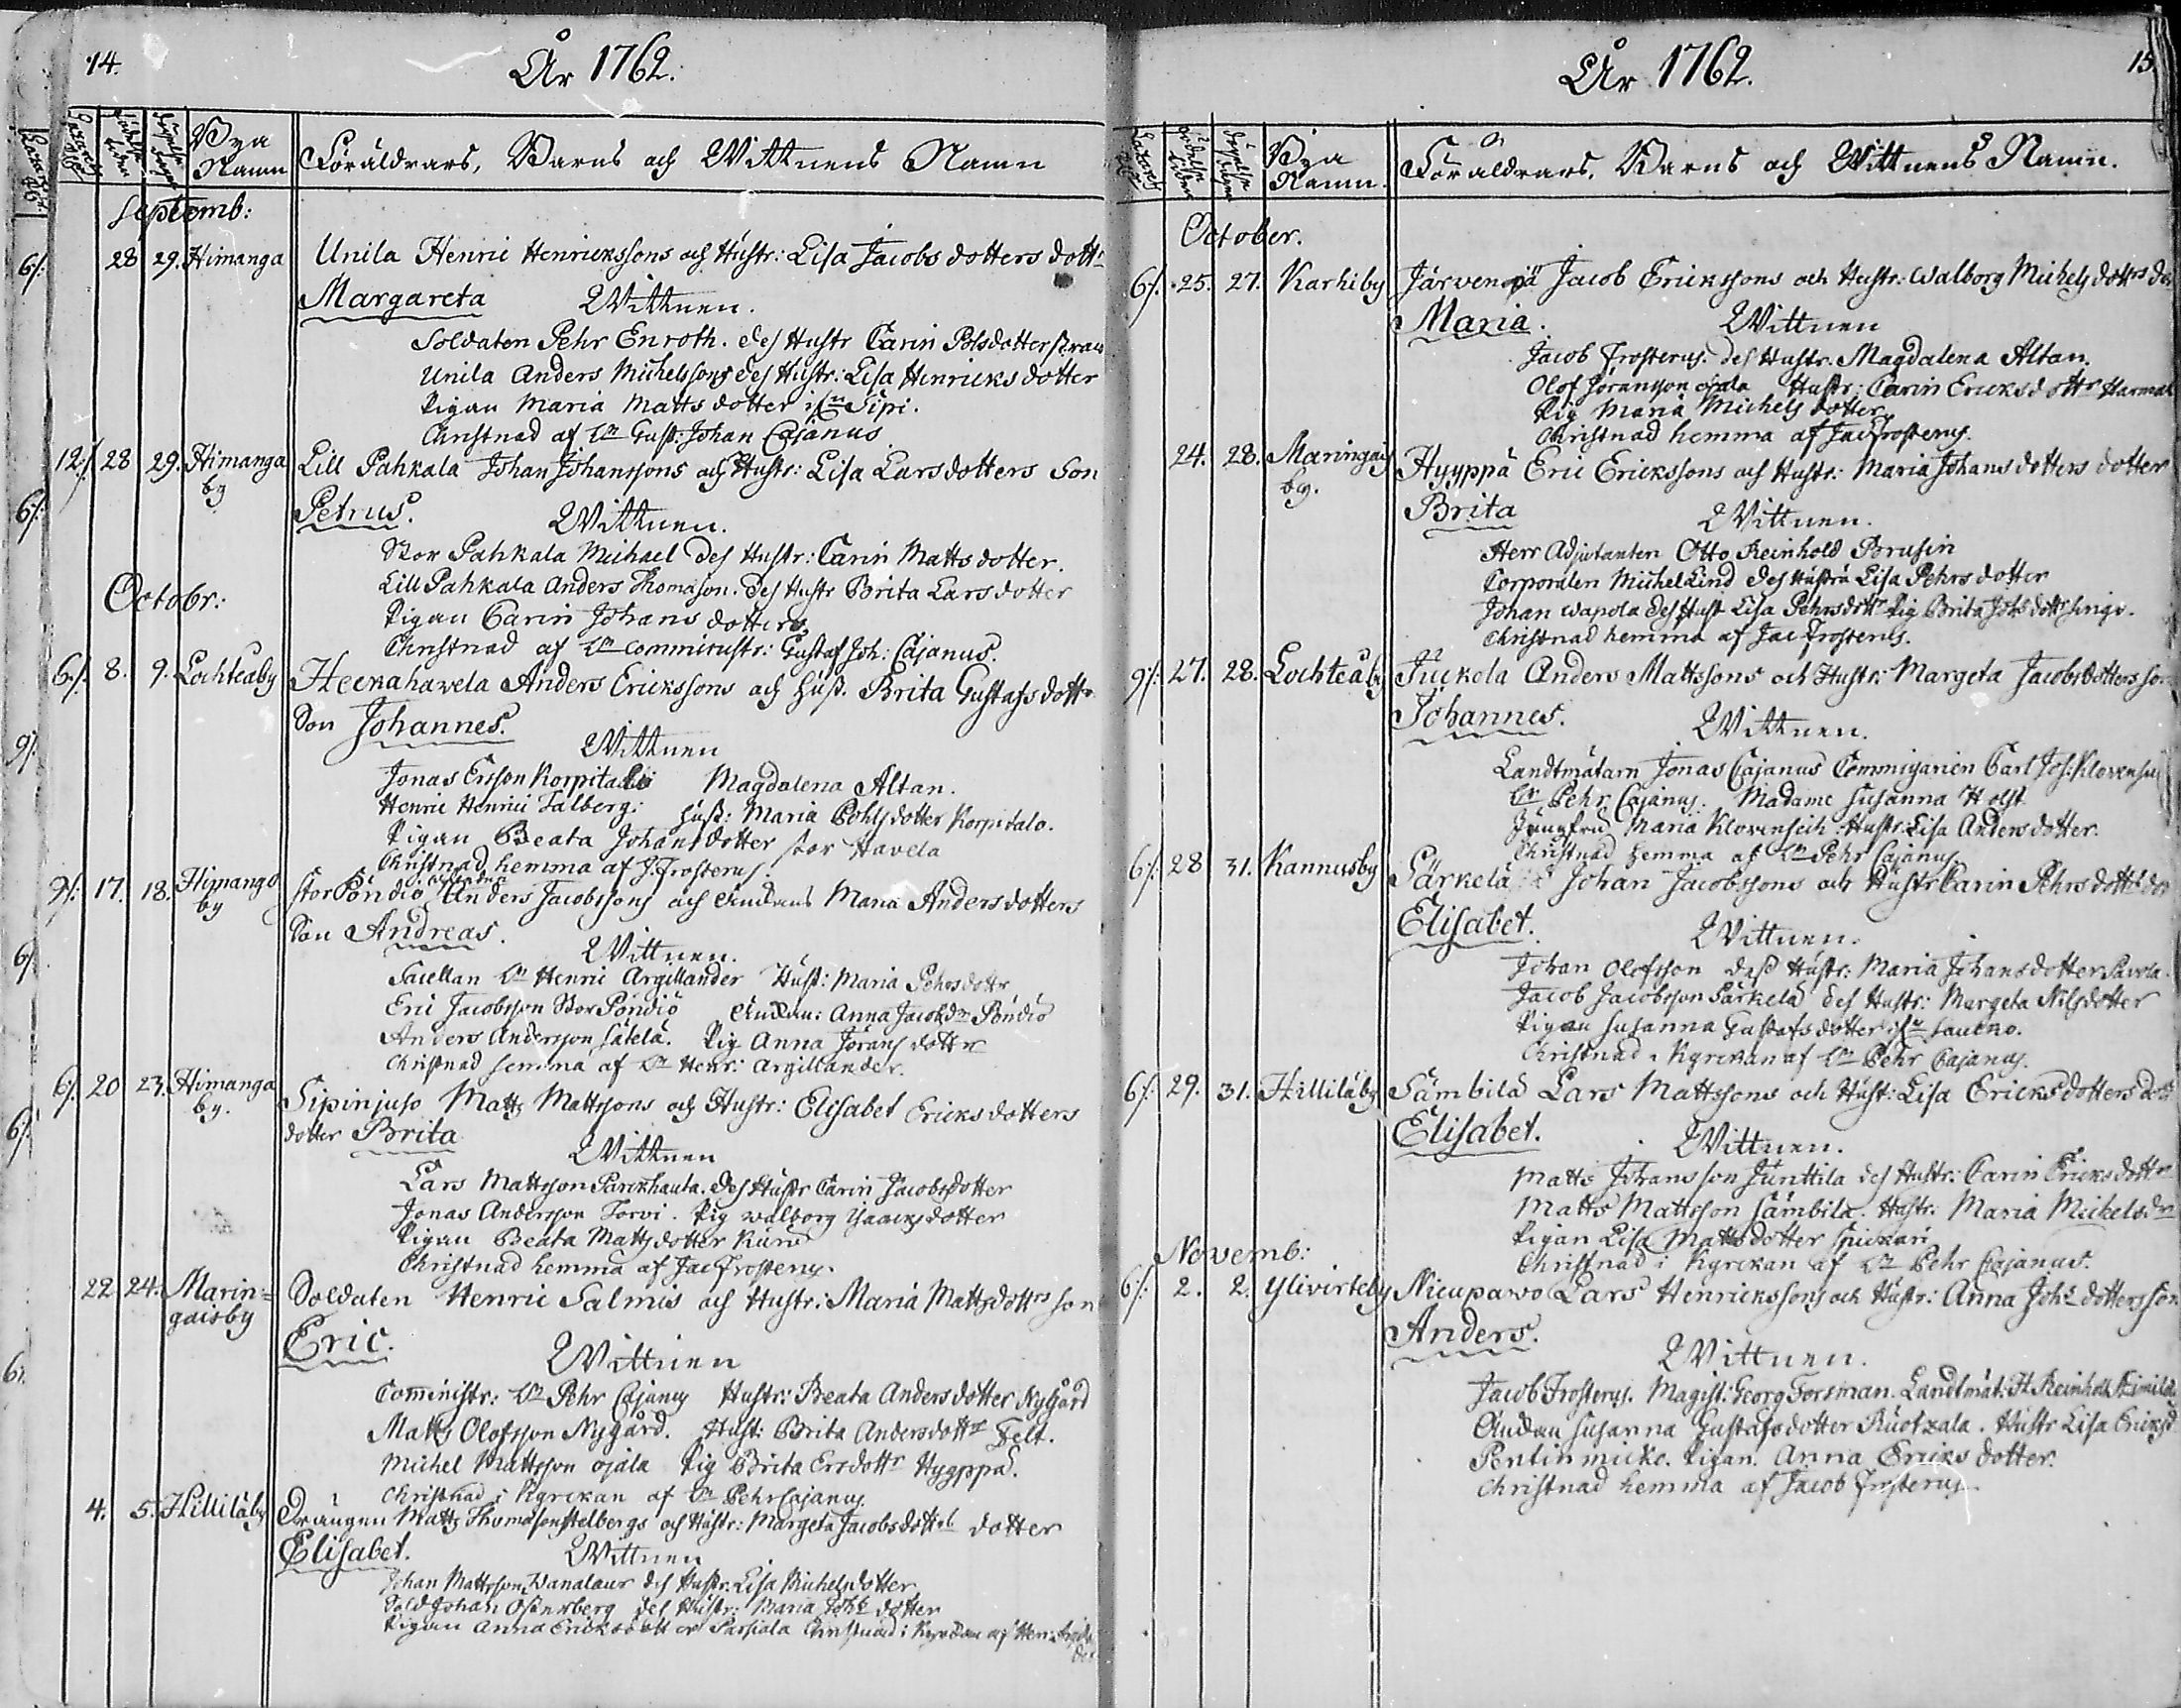 14.
År 1762.
Bya Namn
Föräldrars, Barns och Wittnens Namn
Septemb:
6/. 28 29. Himanga Unila Henric Henricssons och Hustr: Lisa Jacobs dotters dottr
Margareta Wittnen.
Soldaten Pehr Enroth. des Hustr Carin Polsdotter
Unila Anders Michelssons des Hustr: Lisa Henricks dotter
Pigan Maria Matts dotter Sipi.
Christnad af Hr Gust: Johan Cajanus
12/. 28 29. Himanga by Lill Pahkala Johan Johanssons och Hustr: Lisa Larsdotters Son
Petrus. Wittnen.
Stor Pahkala Michael des Hustr: Carin Matts dotter.
Lill Pahkala Anders Thomason. des Hustr Brita Lars dotter
Pigan Carin Johans dotter
Christnad af Hr Comministr: Gustaf Joh: Cajanus.
Octobr:
6/. 8. 9. Lochteåby Heickahawela Anders Erickssons och Hust. Brita Gustafs dottr
Son Johannes.
Wittnen
Jonas Ersson Korpitalo Magdalena Altan.
Henric Henrici Falberg: Hust: Maria Pohls dotter Korpitalo.
Pigan Beata Johans dotter stor Havela
Christnad hemma af J. Frosterus.
9/. 17. 18. Himango by Stor Pöndiö Anders Jacobssons och Enckans Maria Andersdotters
Son Andreas.
Wittnen.
Sacellan Hr Henric Argillander Hust: Maria Pehrsdottr
Eric Jacobsson Stor Pöndiö Enckan: Anna Jacobsdr Pöndiö
Anders Andersson Sätela. Pig Anna Jörans dottr
Christnad hemma af Hr Henr: Argillander.
6/. 20 23. Himanga by. Sipinjuso Matts Mattssons och Hustr: Elisabet Ericks dotters
dotter Brita
Wittnen
Lars Mattsson Parckhauta. des Hustr Carin Jacobsdotter
Jonas Andersson Torvi. Pig Walborg Isaacks dotter
Pigan Beata Matts dotter
Christnad hemma af Jac Frosterus.
22 24. Maringaisby Soldaten Henric Salmis och Hustr: Maria Mattsdottrs son
Eric.
Wittnen
Comministr: Hr Pehr Cajanus Hustr: Beata Anders dotter Nygård
Matts Olofsson Nygård. Hust: Brita Andersdottr Felt.
Michel Mattsson ojala Pig Brita Ersdottr Hygppä.
Christnad i Kyrckan af Hr Pehr Cajanus.
4. 5. Hilliläby Drängen Matts Thomason och Hustr: Margeta Jacobsdottrs dotter
Elisabet.
Wittnen
Johan Mattsson Wanalaur des Hustr. Lisa Michelsdotter
Sold Johan Östersberg des Hustr: Maria Johs dotter
Pigan Anna Ericksdotter Passiala Christnad i Kyrckan af Hen:
15
År 1762.
Bya Namn.
Föräldrars, Barns och Wittnens Namn.
October.
6/. 25. 27. Karhiby Järvenpä Jacob Erickssons och Hustr: Walborg Michels dottrs
Maria. Wittnen
Jacob Frosterus. des Hustr. Magdalena Altan.
Olof Göransson ojala Hustr: Carin Ericksdottr
Pig Maria Michels dotter
Christnad hemma af Jac Frosterus.
24. 28. Maringais by. Hyyppä Eric Erickssons och Hustr: Maria Johans dotters dotter
Brita
Wittnen.
Herr Adjutanten Otto Reinhold Brusin
Corporalen Michel Lind des Hustru Lisa Pehrs dotter
Johan Wapola des Hust Lisa Pehrsdottr Pig Brita Johs dottr
Christnad hemma af Jac Frosterus.
9/. 27. 28. Lochteåby Juckola Anders Mattssons och Hustr: Margeta Jacobsdotters son
Johannes.
Wittnen.
Landtmätarn Jonas Cajanus Commisarien Carl Joh:
Hr Pehr Cajanus. Madame Susanna Holst
Jungfru Maria Klovensich Hustr: Lisa Anders dotter.
Christnad hemma af Hr Pehr Cajanus.
6/. 28 31. Kannusby Särkelä Johan Jacobssons och Hustr Carin Pehrs dottrs
Elisabet.
Wittnen.
Johan Olofsson dess Hustr: Maria Johansdotter Pavola.
Jacob Jacobsson Särkelä des Hustr: Margeta Nilsdotter
Pigan Susanna Gustafs dotter
Christnad i Kyrckan af Hr Pehr Cajanus.
6/. 29. 31. Hilliläby Sämbilä Lars Mattssons och Hust: Lisa Ericksdotters dott
Elisabet.
Wittnen.
Matts Johansson Junttila des Hustr: Carin Ericks dottr
Matts Mattsson Sämbila. Hustr: Maria Michelsdr
Pigan Lisa Matts dotter
Christnad i Kyrckan af Hr Pehr Cajanus.
Novemb:
6/. 2. 2. Yliwirteby Nicupawo Lars Henrickssons och Hustr: Anna Johs dotters son
Anders.
Wittnen.
Jacob Frosterus. Magist: Georg Forsman. Landtmät: H. Reinhold
Enckan Susanna Gustafsdotter Ruotzala. Hustr Lisa
Pentinmicko. Pigan. Anna Ericks dotter.
Christnad hemma af Jacob Frosterus.